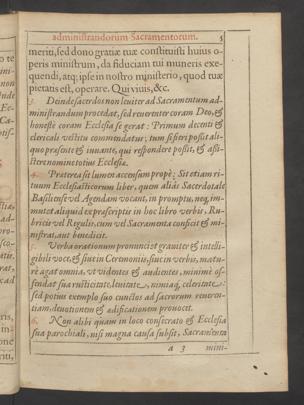 administrandorum Sacramentorum. 5
meriti, sed dono gratiæ tuæ constituisti huius o-
peris ministrum, da fiduciam tui muneris exe-
quendi, atq; ipse in nostro ministerio, quod tuæ
pietatis est, operare. Qui viuis, &c.
3. Deinde sacerdos non leuiter ad Sacramentum ad-
ministrandum procedat, sed reuerenter coram Deo, &
honestè coram Ecclesia se gerat: Primum decenti &
clericali vestitu commendatur; tum si fieri possit ali-
quo præsente & iuuante, qui respondere possit, & assi-
stere nomine totius Ecclesia.
4. Præterea sit lumen accensum propè; Sit etiam ri-
tuum Ecclesiasticorum liber, quem aliàs Sacerdotale
Basiliense vel Agendam vocant, in promptu, neq, im-
mutet aliquid ex præscriptis in hoc libro verbis, Ru-
bricis vel Regulis, cum vel Sacramenta conficit & mi-
nistrat, aut benedicit.
5. Verba orationum pronunciet grauiter & intelli-
gibili voce, & siue in Ceremoniis, siue in verbis, matu-
rè agat omnia, vt videntes & audientes, minimè of-
fendat sua rusticitate, leuitate, nimiaq, celeritate:
sed potius exemplo suo cunctos ad sacrorum reueren-
tiam, deuotionem & ædificationem prouocet.
6. Non alibi quam in loco consecrato & Ecclesia
sua parochiali, nisi magna causa subsit, Sacramenta
a 3 mini-